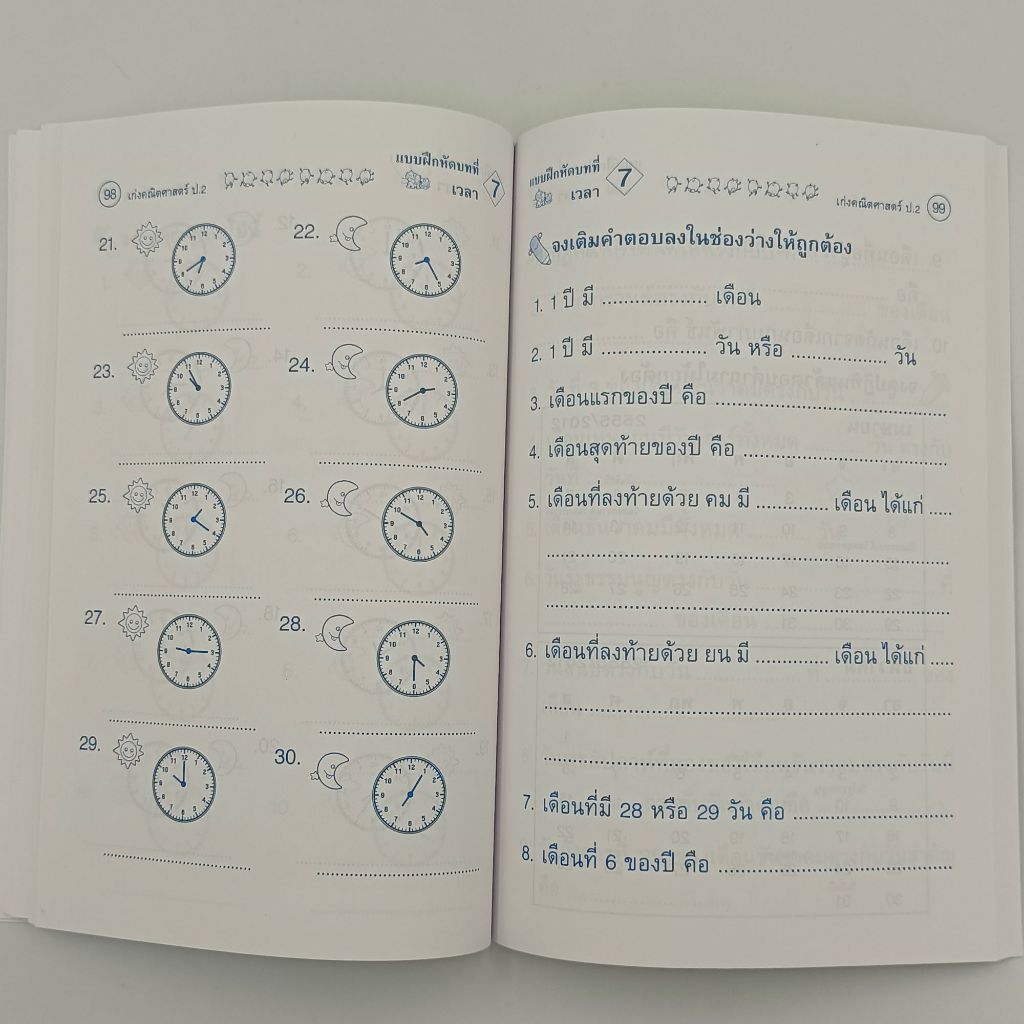 98 เก่งคณิตศาสตร์ ป.2
แบบฝึกหัดบทที่ 7
เวลา
21.
22.
23.
24.
25.
26.
27.
28.
29.
30.
แบบฝึกหัดบทที่ 7
เวลา
เก่งคณิตศาสตร์ ป.2 99
จงเติมคำตอบลงในช่องว่างให้ถูกต้อง
1. 1 ปี มี ................... เดือน
2. 1 ปี มี ................... วัน หรือ ................. วัน
3. เดือนแรกของปี คือ ..........................................
4. เดือนสุดท้ายของปี คือ .....................................
5. เดือนที่ลงท้ายด้วย คม มี ............. เดือน ได้แก่ ....
6. เดือนที่ลงท้ายด้วย ยน มี ............. เดือน ได้แก่ ....
7. เดือนที่มี 28 หรือ 29 วัน คือ .............................
8. เดือนที่ 6 ของปี คือ ..........................................